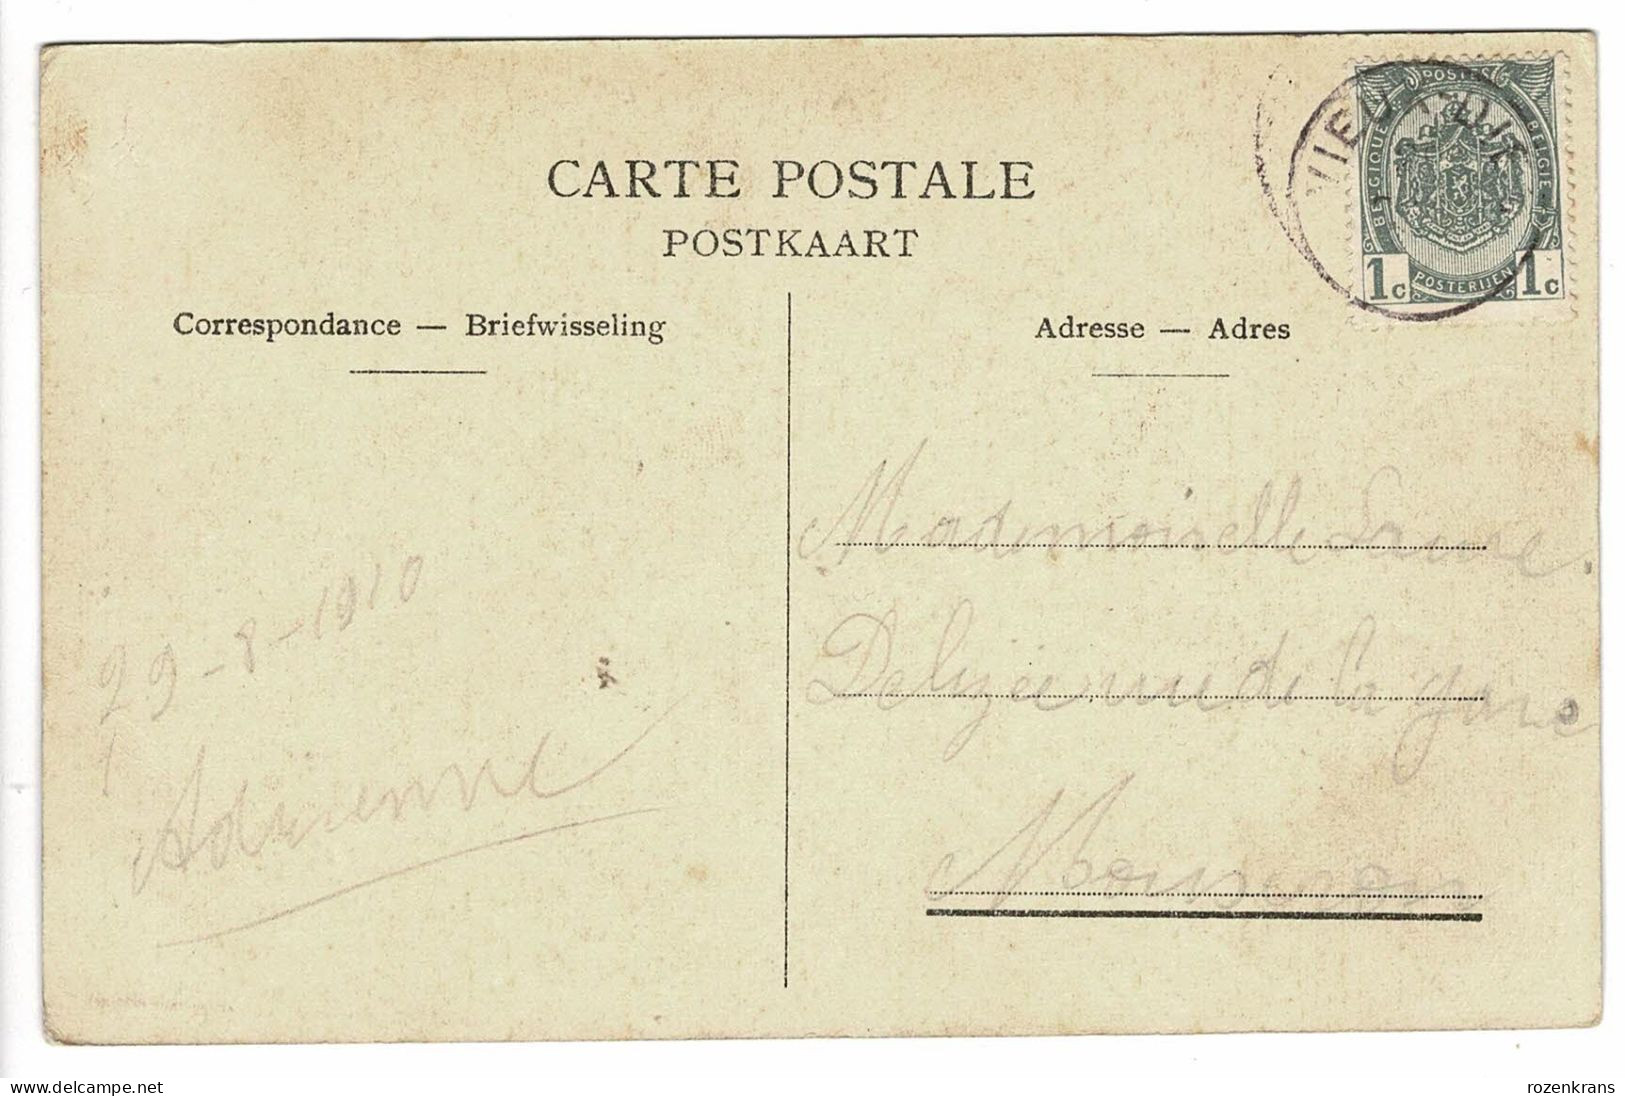 CARTE POSTALE
POSTKAART
Correspondance — Briefwisseling
Adresse — Adres
POSTES
BELGIQUE
BELGIË
POSTERIJEN
1c 1c
Mademoiselle Laure
de la gare
Mouscron
29-8-1910
Adrienne
delcampe.net
rozenkrans